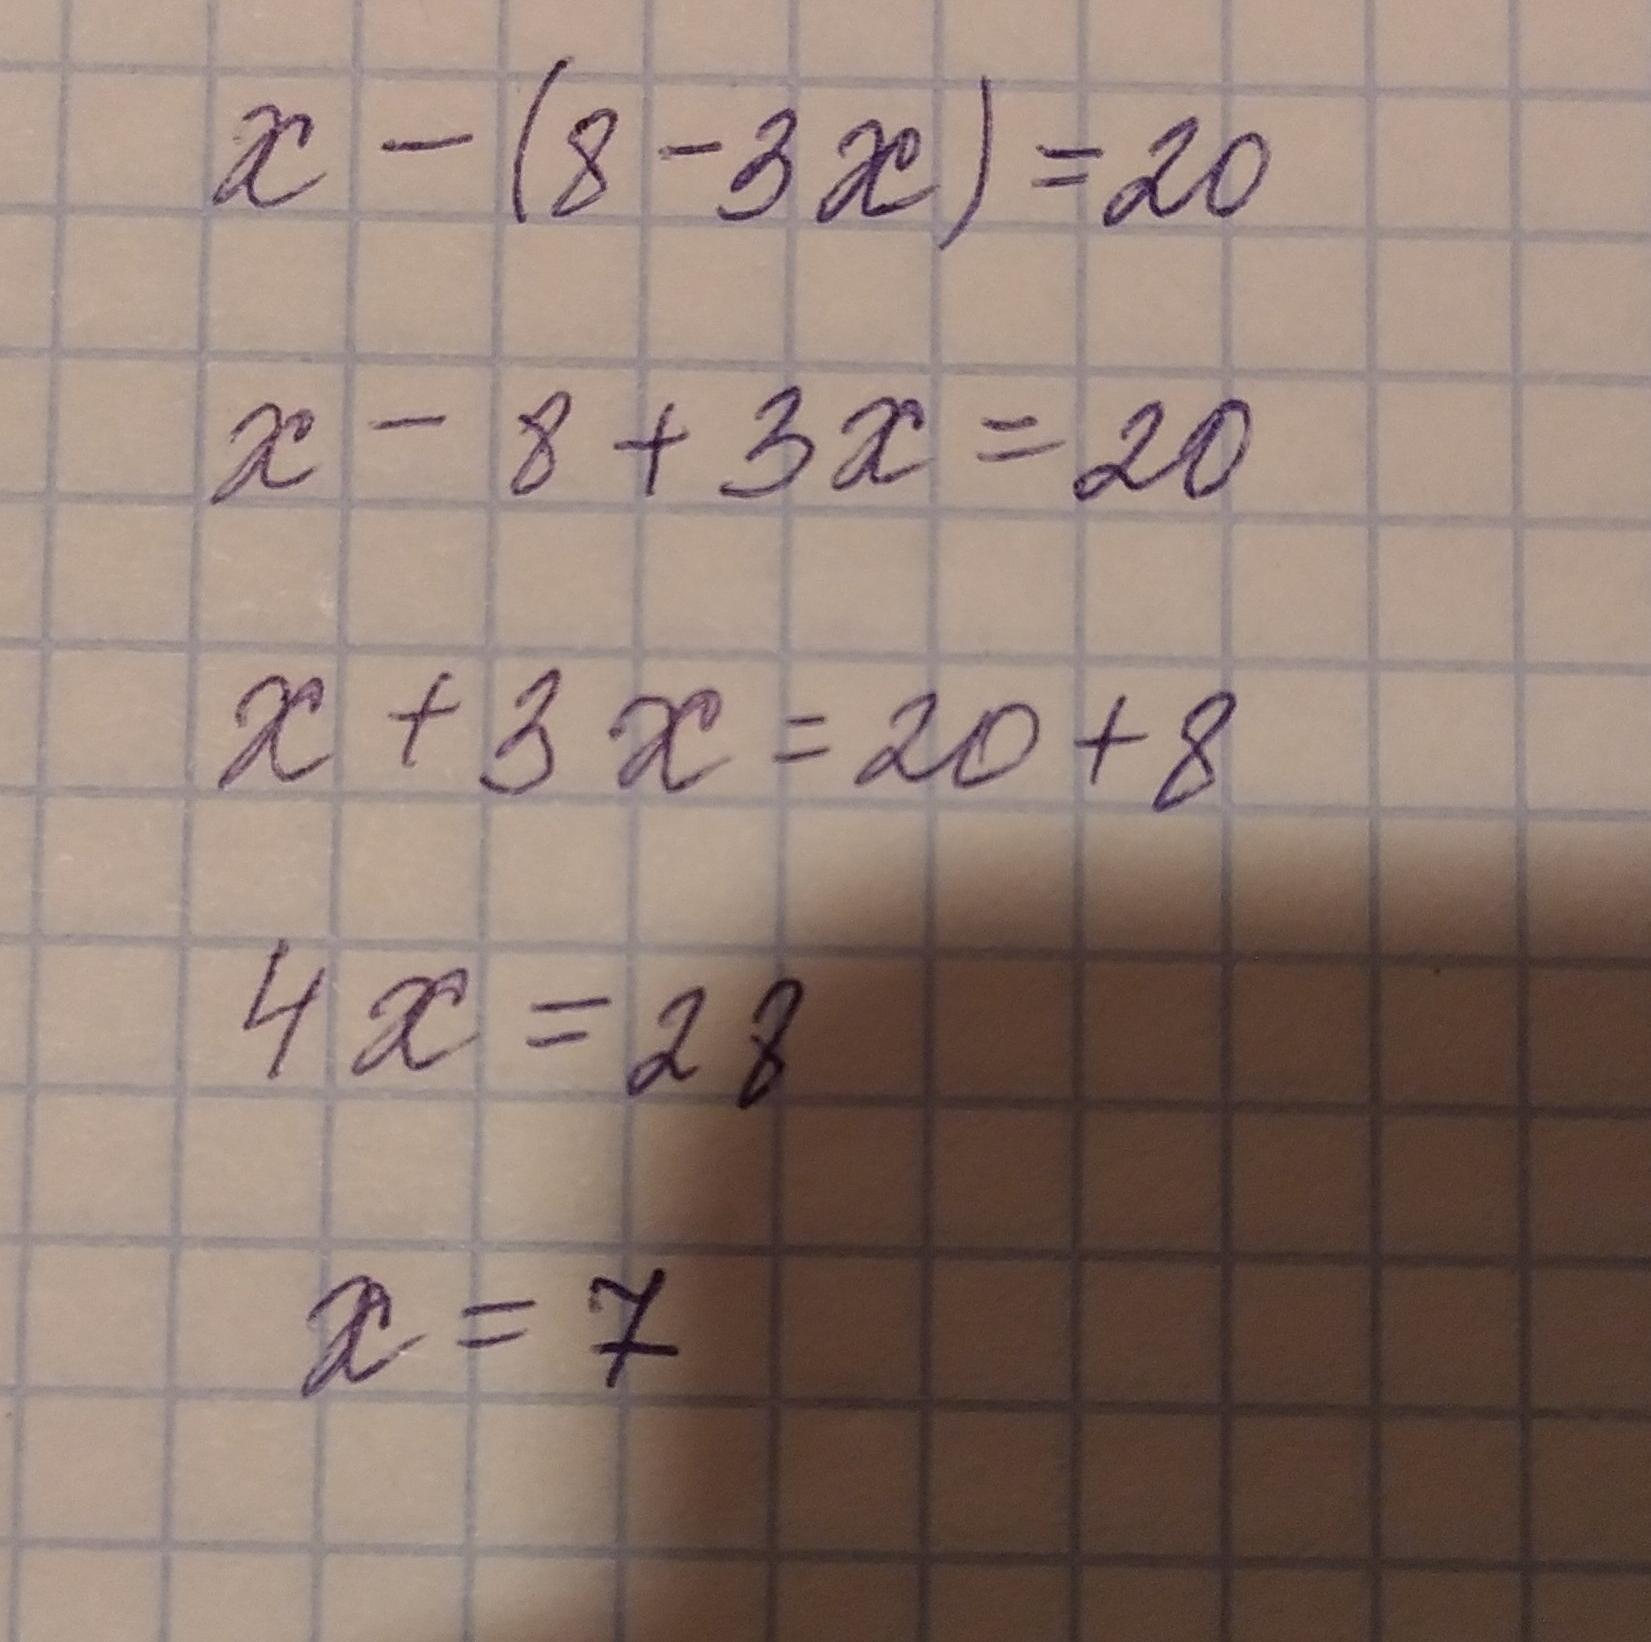 x - (8 - 3x) = 20
x - 8 + 3x = 20
x + 3x = 20 + 8
4x = 28
x = 7